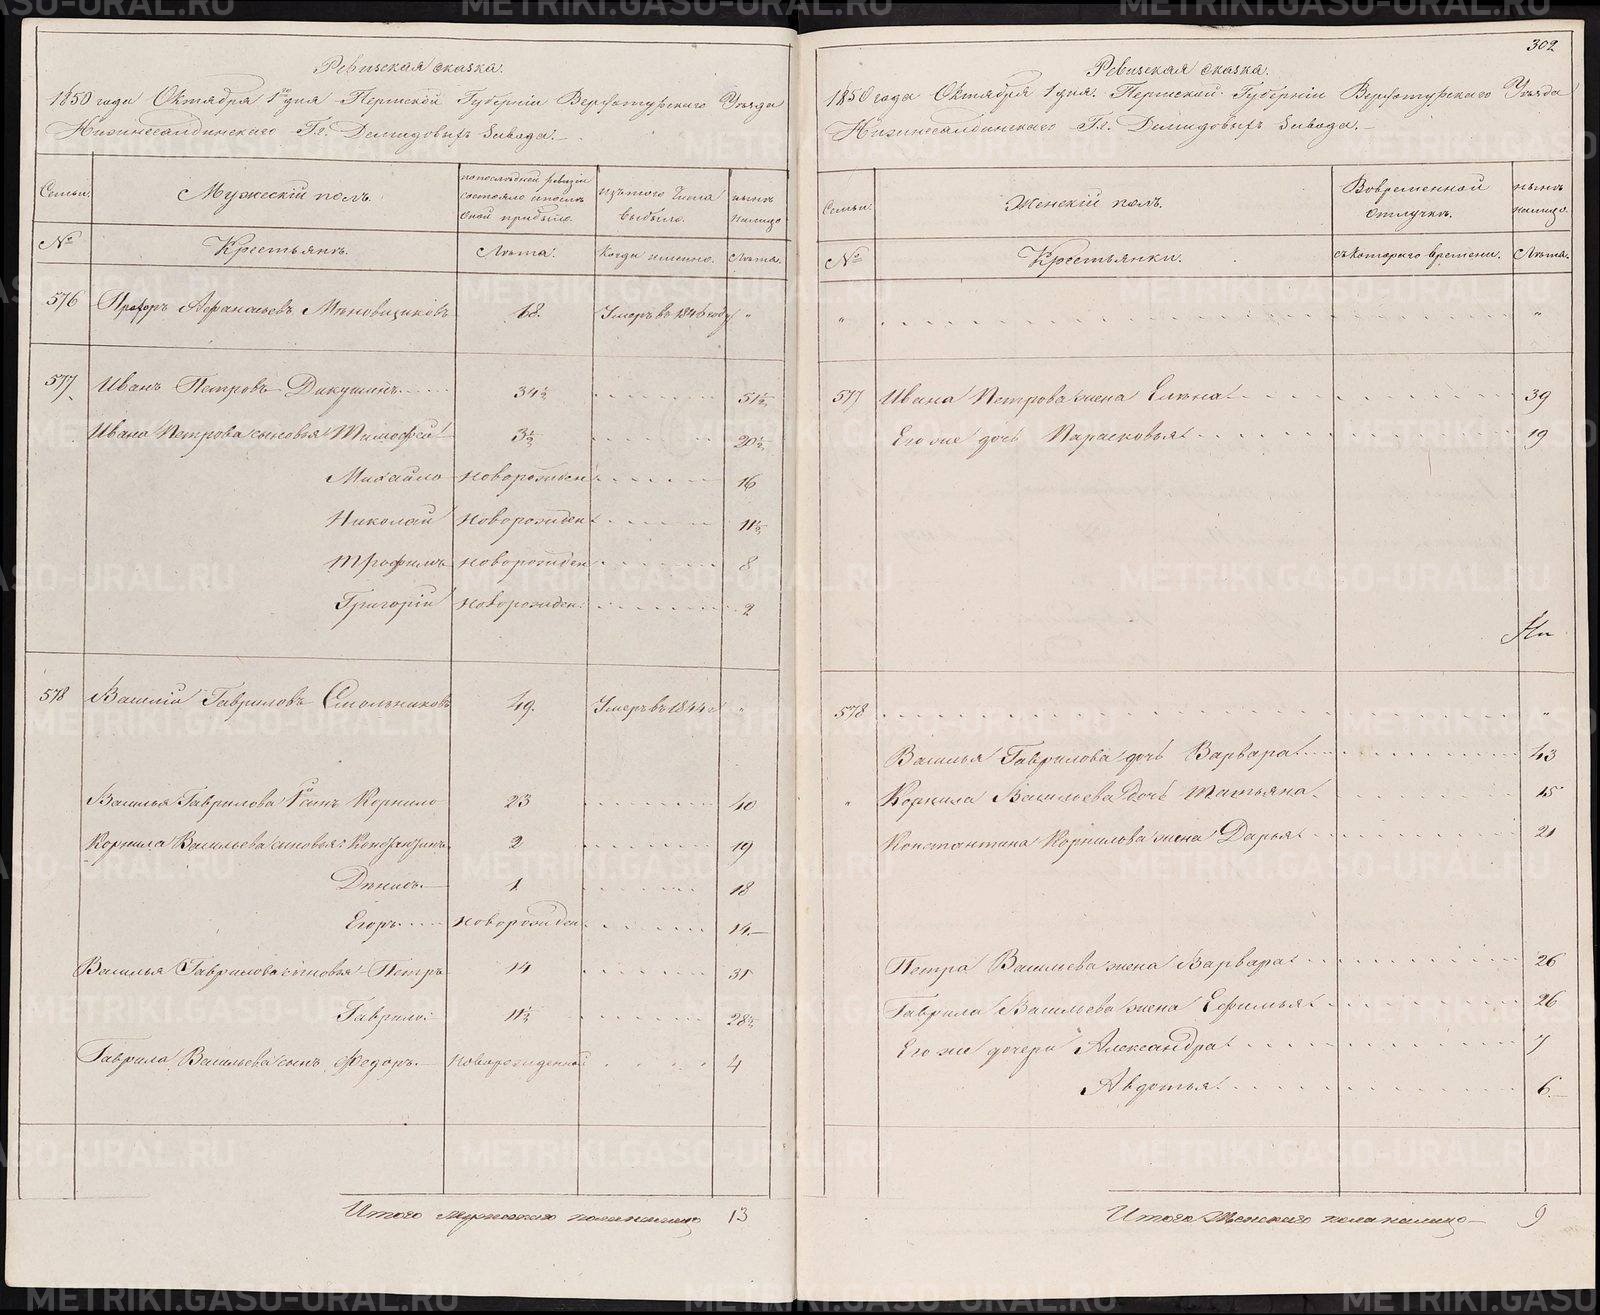 Ревизская сказка.
1850 года Октября 1го дня Пермской Губернiи Верхотурскаго Уѣзда
Нижнесалдинскаго Гг. Демидовыхъ Завода.
Семьи.
Мужескiй полъ.
по последней ревизiи
состояло и после
оной прибыло.
изъ того числа
выбыло.
нынѣ
налицо
№
Крестьянъ.
Лѣта.
Когда именно.
Лѣта.
576 Афанасьевъ Мѣновщиковъ 18. Умеръ въ 1846 году "
577 Иванъ Петровъ Дакушинъ 34½ 51½
Ивана Петрова сыновья Тимофей 3½ 20½
Михайло новорожден 16
Николай новорожден 11½
Трофимъ новорожден 8
Григорiй новорожден 2
578 Василiй Гавриловъ Смольниковъ 49. Умеръ въ 1844 г "
Василья Гаврилова 1й сынъ Корнило 23 40
Корнила Васильева сыновья: Константинъ 2 19
Денисъ 1 18
Егоръ новорожден 14
Василья Гаврилова сыновья Петръ 14 31
Гаврило 11½ 28½
Гаврила Васильева сынъ Федоръ новорожденной 4
Итого мужескаго пола налицо 13
302
Ревизская сказка.
1850 года Октября 1 дня. Пермской Губернiи Верхотурскаго Уѣзда
Нижнесалдинскаго Гг. Демидовыхъ Завода.
Семьи.
Женскiй полъ.
Во временной
отлучкѣ.
нынѣ
налицо
№
Крестьянки.
съ котораго времени.
Лѣта.
" "
577 Ивана Петрова жена Елена 39
Его же дочь Парасковья 19
578 "
Василья Гаврилова дочь Варвара 43
" Корнила Васильева дочь Татьяна 15
Константина Корнилова жена Дарья 21
Петра Васильева жена Варвара 26
Гаврила Васильева жена Ефимья 26
Его же дочери Александра 7
Авдотья 6
Итого Женскаго пола налицо 9
METRIKI.GASO-URAL.RU